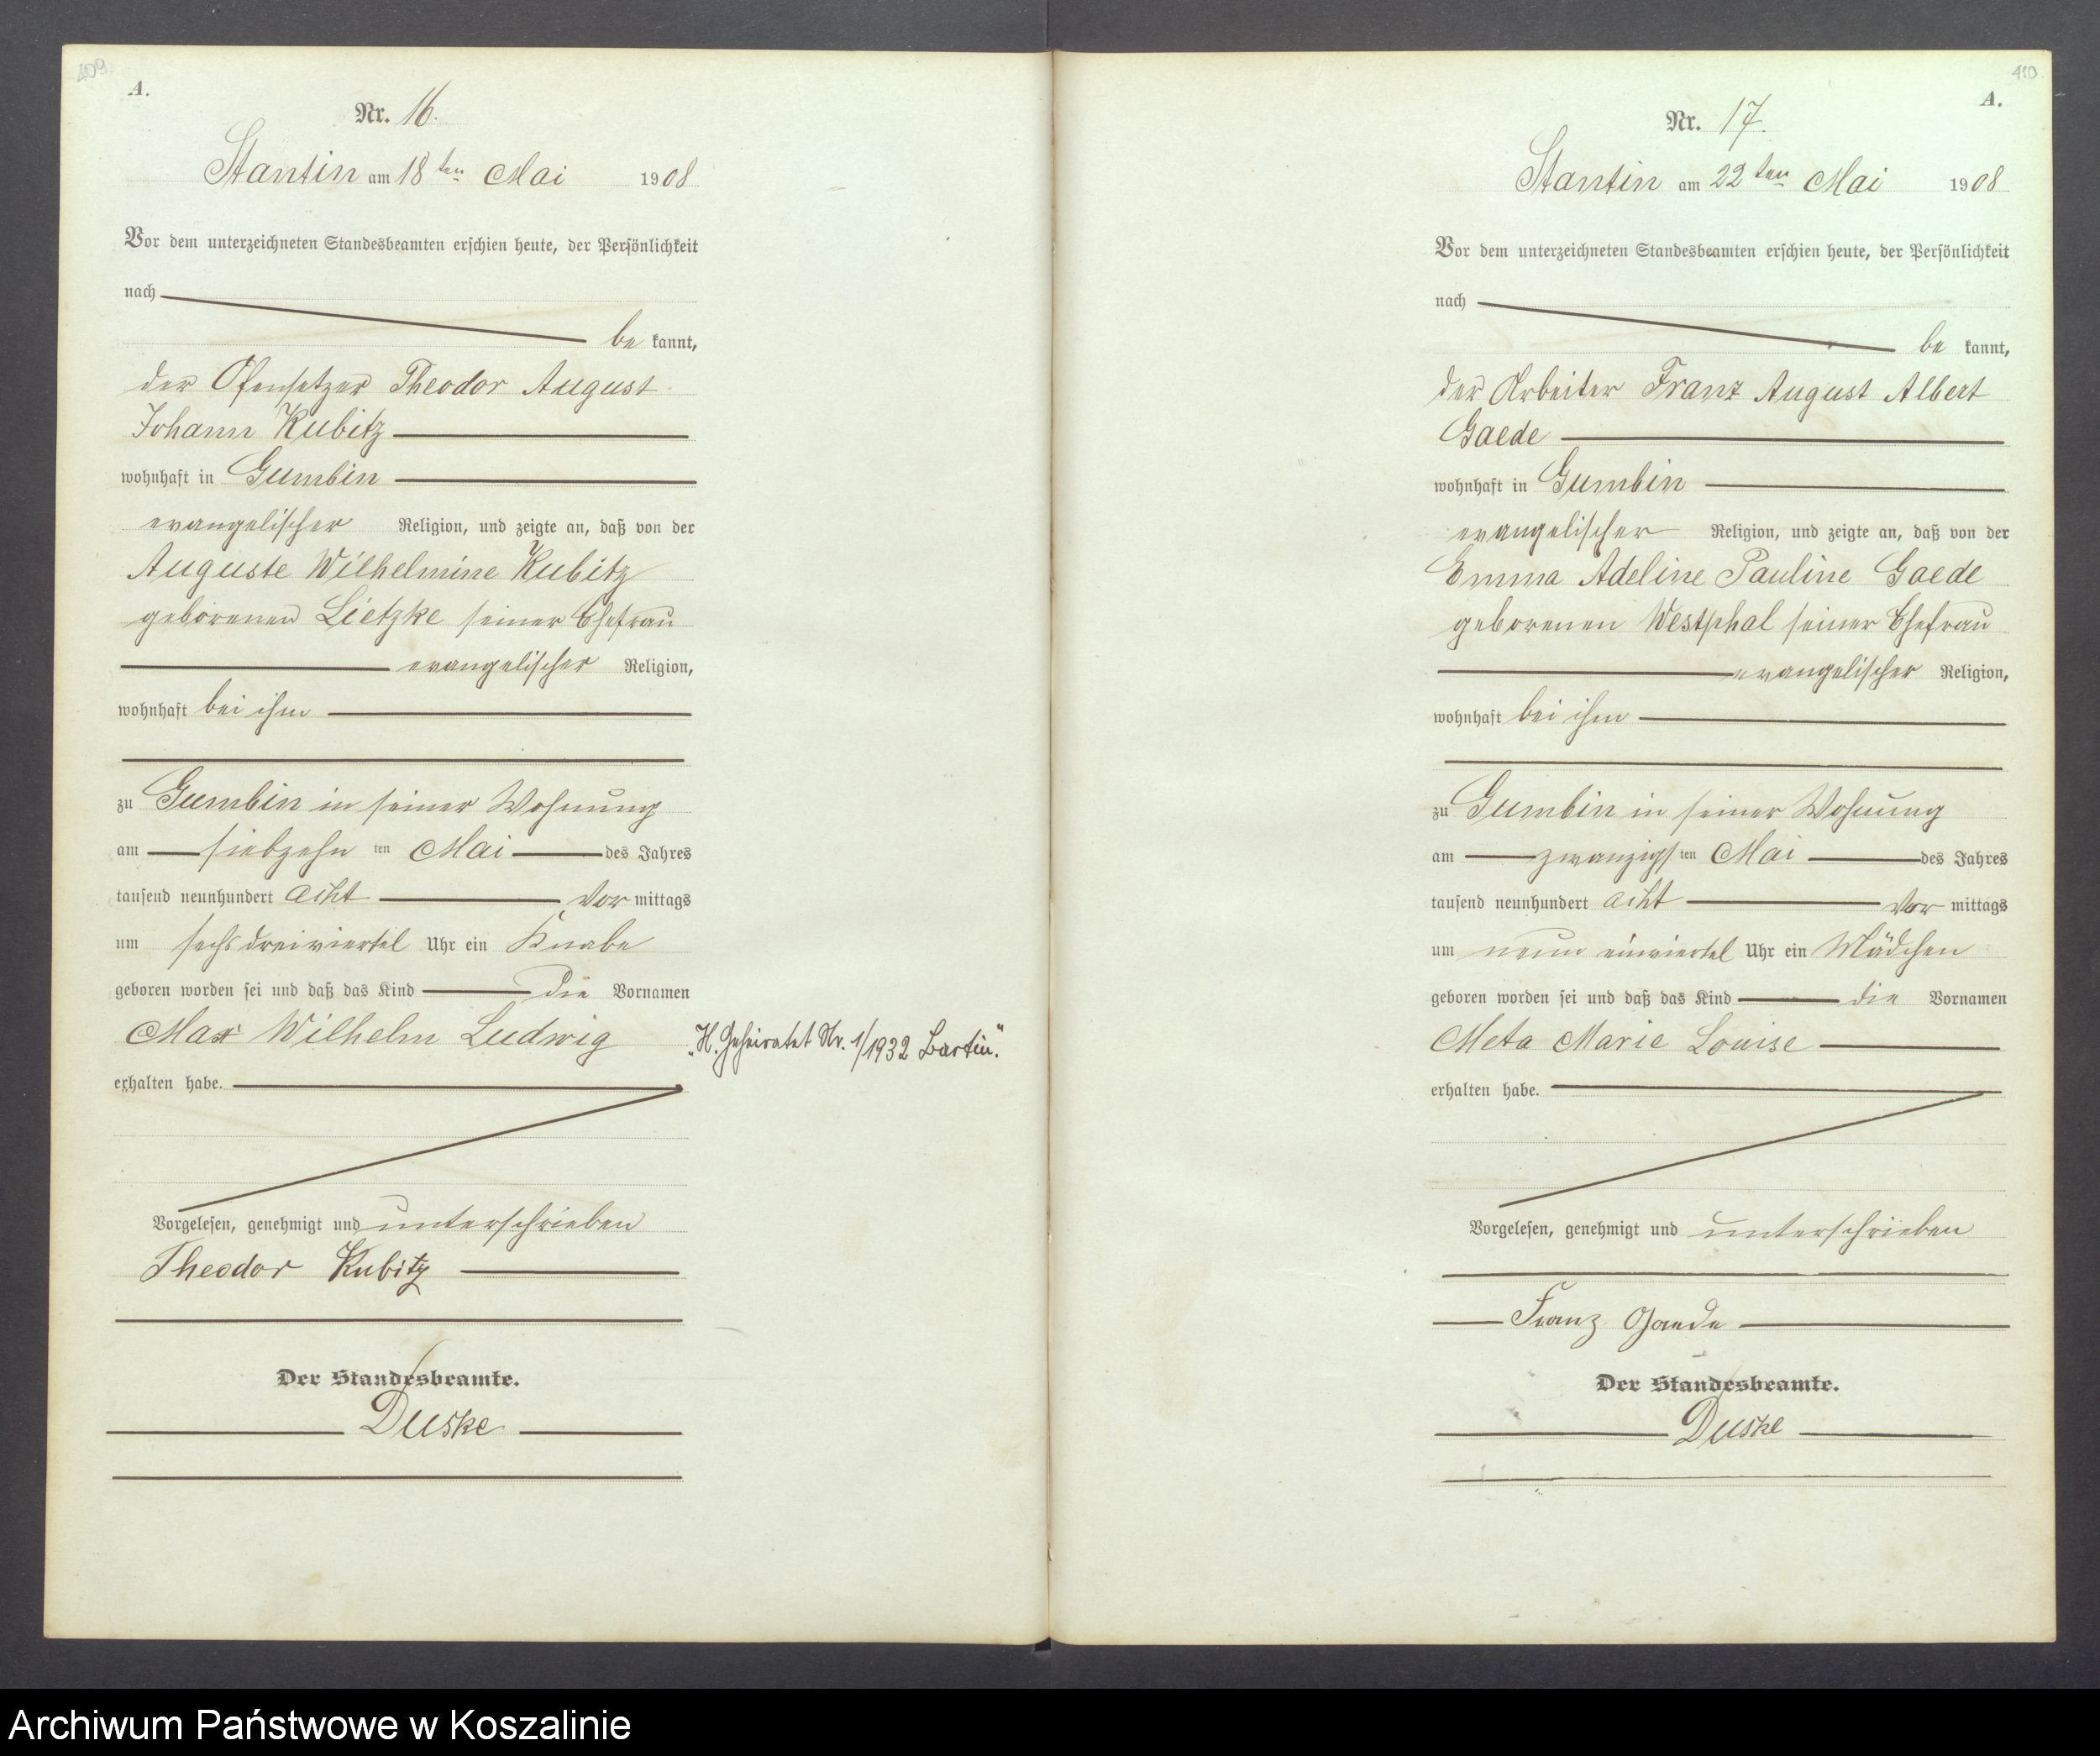 409.
A.
Nr. 16.
Stantin am 18ten Mai 1908
Vor dem unterzeichneten Standesbeamten erschien heute, der Persönlichkeit
nach
be kannt,
der Ofensetzer Theodor August
Johann Kubitz
wohnhaft in Gumbin
evangelischer Religion, und zeigte an, daß von der
Auguste Wilhelmine Kubitz
geborenen Lietzke seiner Ehefrau
evangelischer Religion,
wohnhaft bei ihm
zu Gumbin in seiner Wohnung
am siebzehn ten Mai des Jahres
tausend neunhundert acht Vor mittags
um sechs dreiviertel Uhr ein Knabe
geboren worden sei und daß das Kind die Vornamen
Max Wilhelm Ludwig
„H. Geheiratet Nr. 1/1932 Bartin."
erhalten habe.
Vorgelesen, genehmigt und unterschrieben
Theodor Kubitz
Der Standesbeamte.
Duske
410.
A.
Nr. 17.
Stantin am 22ten Mai 1908
Vor dem unterzeichneten Standesbeamten erschien heute, der Persönlichkeit
nach
be kannt,
der Arbeiter Franz August Albert
Gaede
wohnhaft in Gumbin
evangelischer Religion, und zeigte an, daß von der
Emma Adeline Pauline Gaede
geborenen Westphal seiner Ehefrau
evangelischer Religion,
wohnhaft bei ihm
zu Gumbin in seiner Wohnung
am zwanzigs ten Mai des Jahres
tausend neunhundert acht Vor mittags
um neun einviertel Uhr ein Mädchen
geboren worden sei und daß das Kind die Vornamen
Meta Marie Louise
erhalten habe.
Vorgelesen, genehmigt und unterschrieben
Franz Gaede
Der Standesbeamte.
Duske
Archiwum Państwowe w Koszalinie